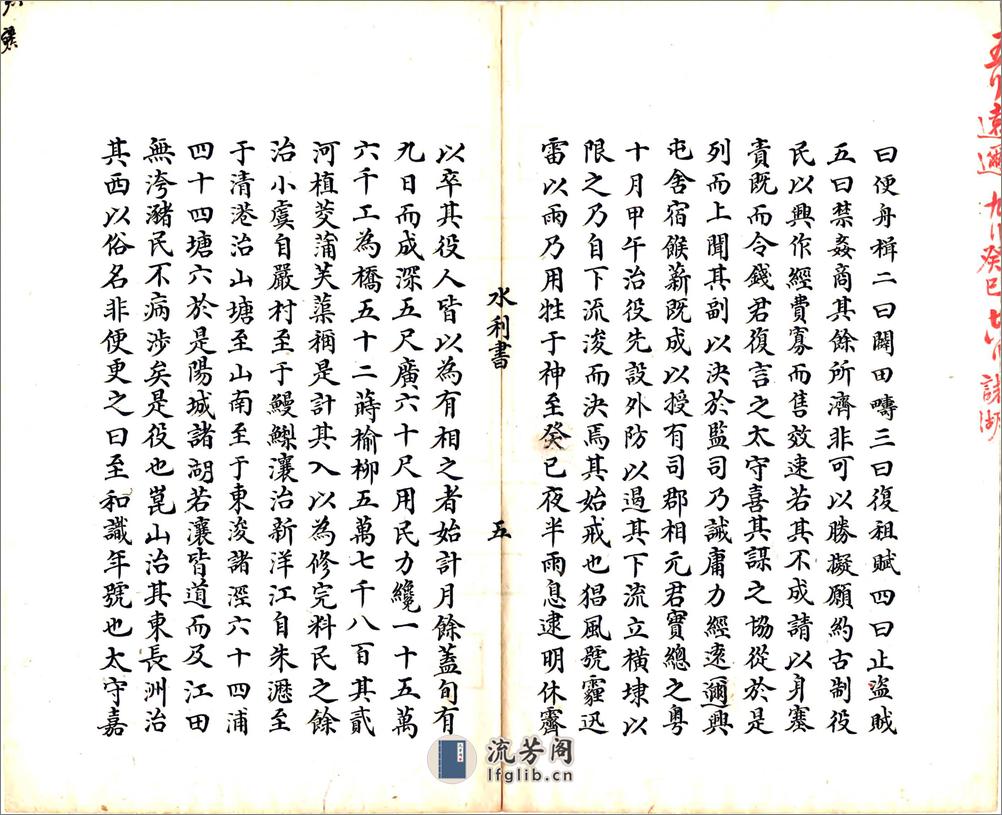 遠邇
癸巳
諸湖
曰便舟楫二曰闢田疇三曰復租賦四曰止盜賊
五曰禁姦商其餘所濟非可以勝擬願約古制役
民以興作經費寡而售效速若其不成請以身塞
責既而令錢君復言之太守喜其謀之協從於是
列而上聞其副以決於監司乃誡庸力經逺邇興
屯舍宿餱薪既成以授有司郡相元君實總之粵
十月甲午治役先設外防以遏其下流立橫埭以
限之乃自下流浚而決焉其始戒也猖風號霾迅
雷以雨乃用牲于神至癸巳夜半雨息逮明休霽
水利書 五
以卒其役人皆以為有相之者始計月餘蓋旬有
九日而成深五尺廣六十尺用民力纔一十五萬
六千工為橋五十二蒔榆柳五萬七千八百其貳
河植茭蒲芙蕖稱是計其入以為修完料民之餘
治小虞自嚴村至于鰻鱺瀼治新洋江自朱瀝至
于清港治山塘至山南至于東浚諸涇六十四浦
四十四塘六於是陽城諸湖若瀼皆道而及江田
無洿瀦民不病涉矣是役也崑山治其東長洲治
其西以俗名非便更之曰至和識年號也太守嘉
流芳阁
lfglib.cn